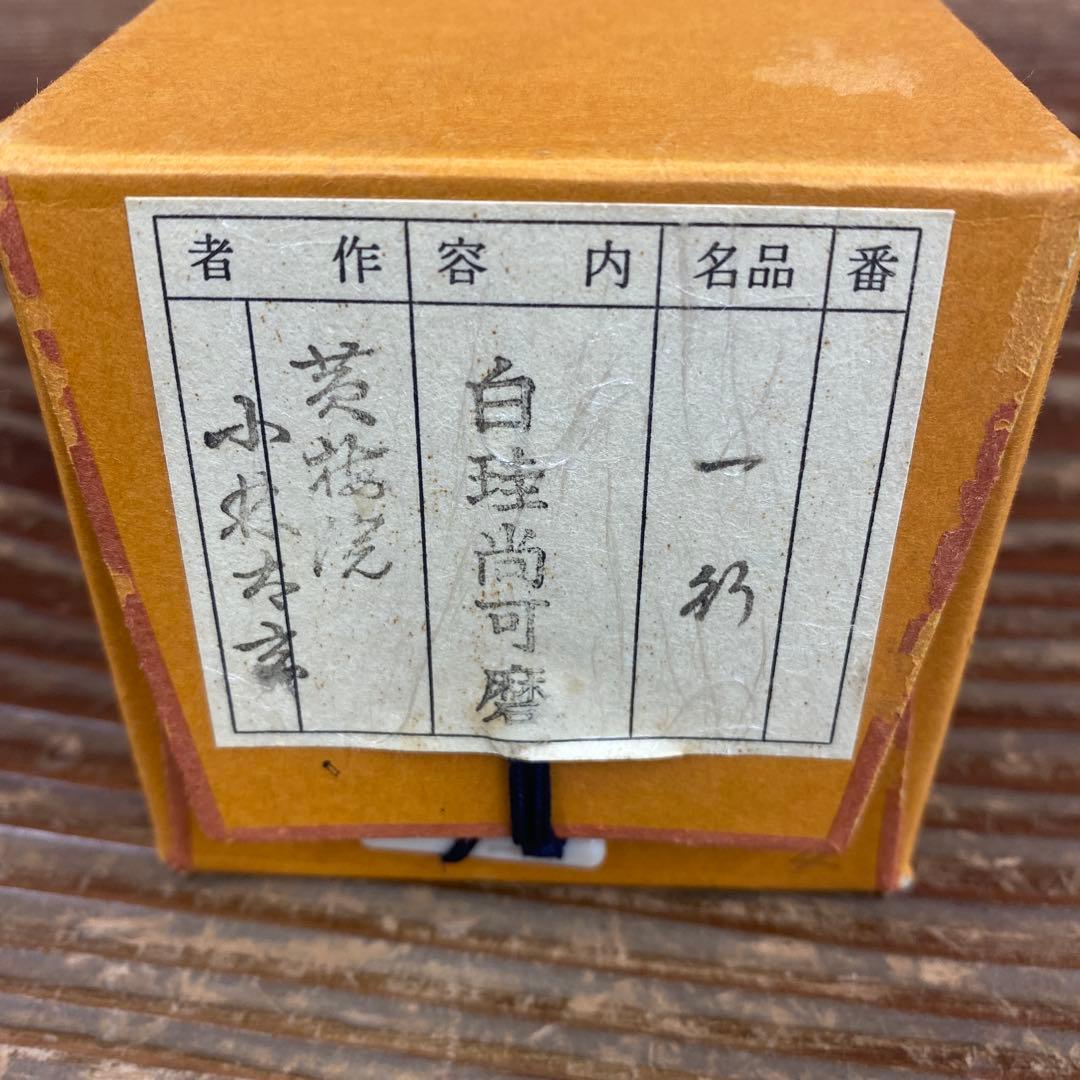 番
品名
内容
作者
一行
白珪尚可磨
黄梅院
小林太玄